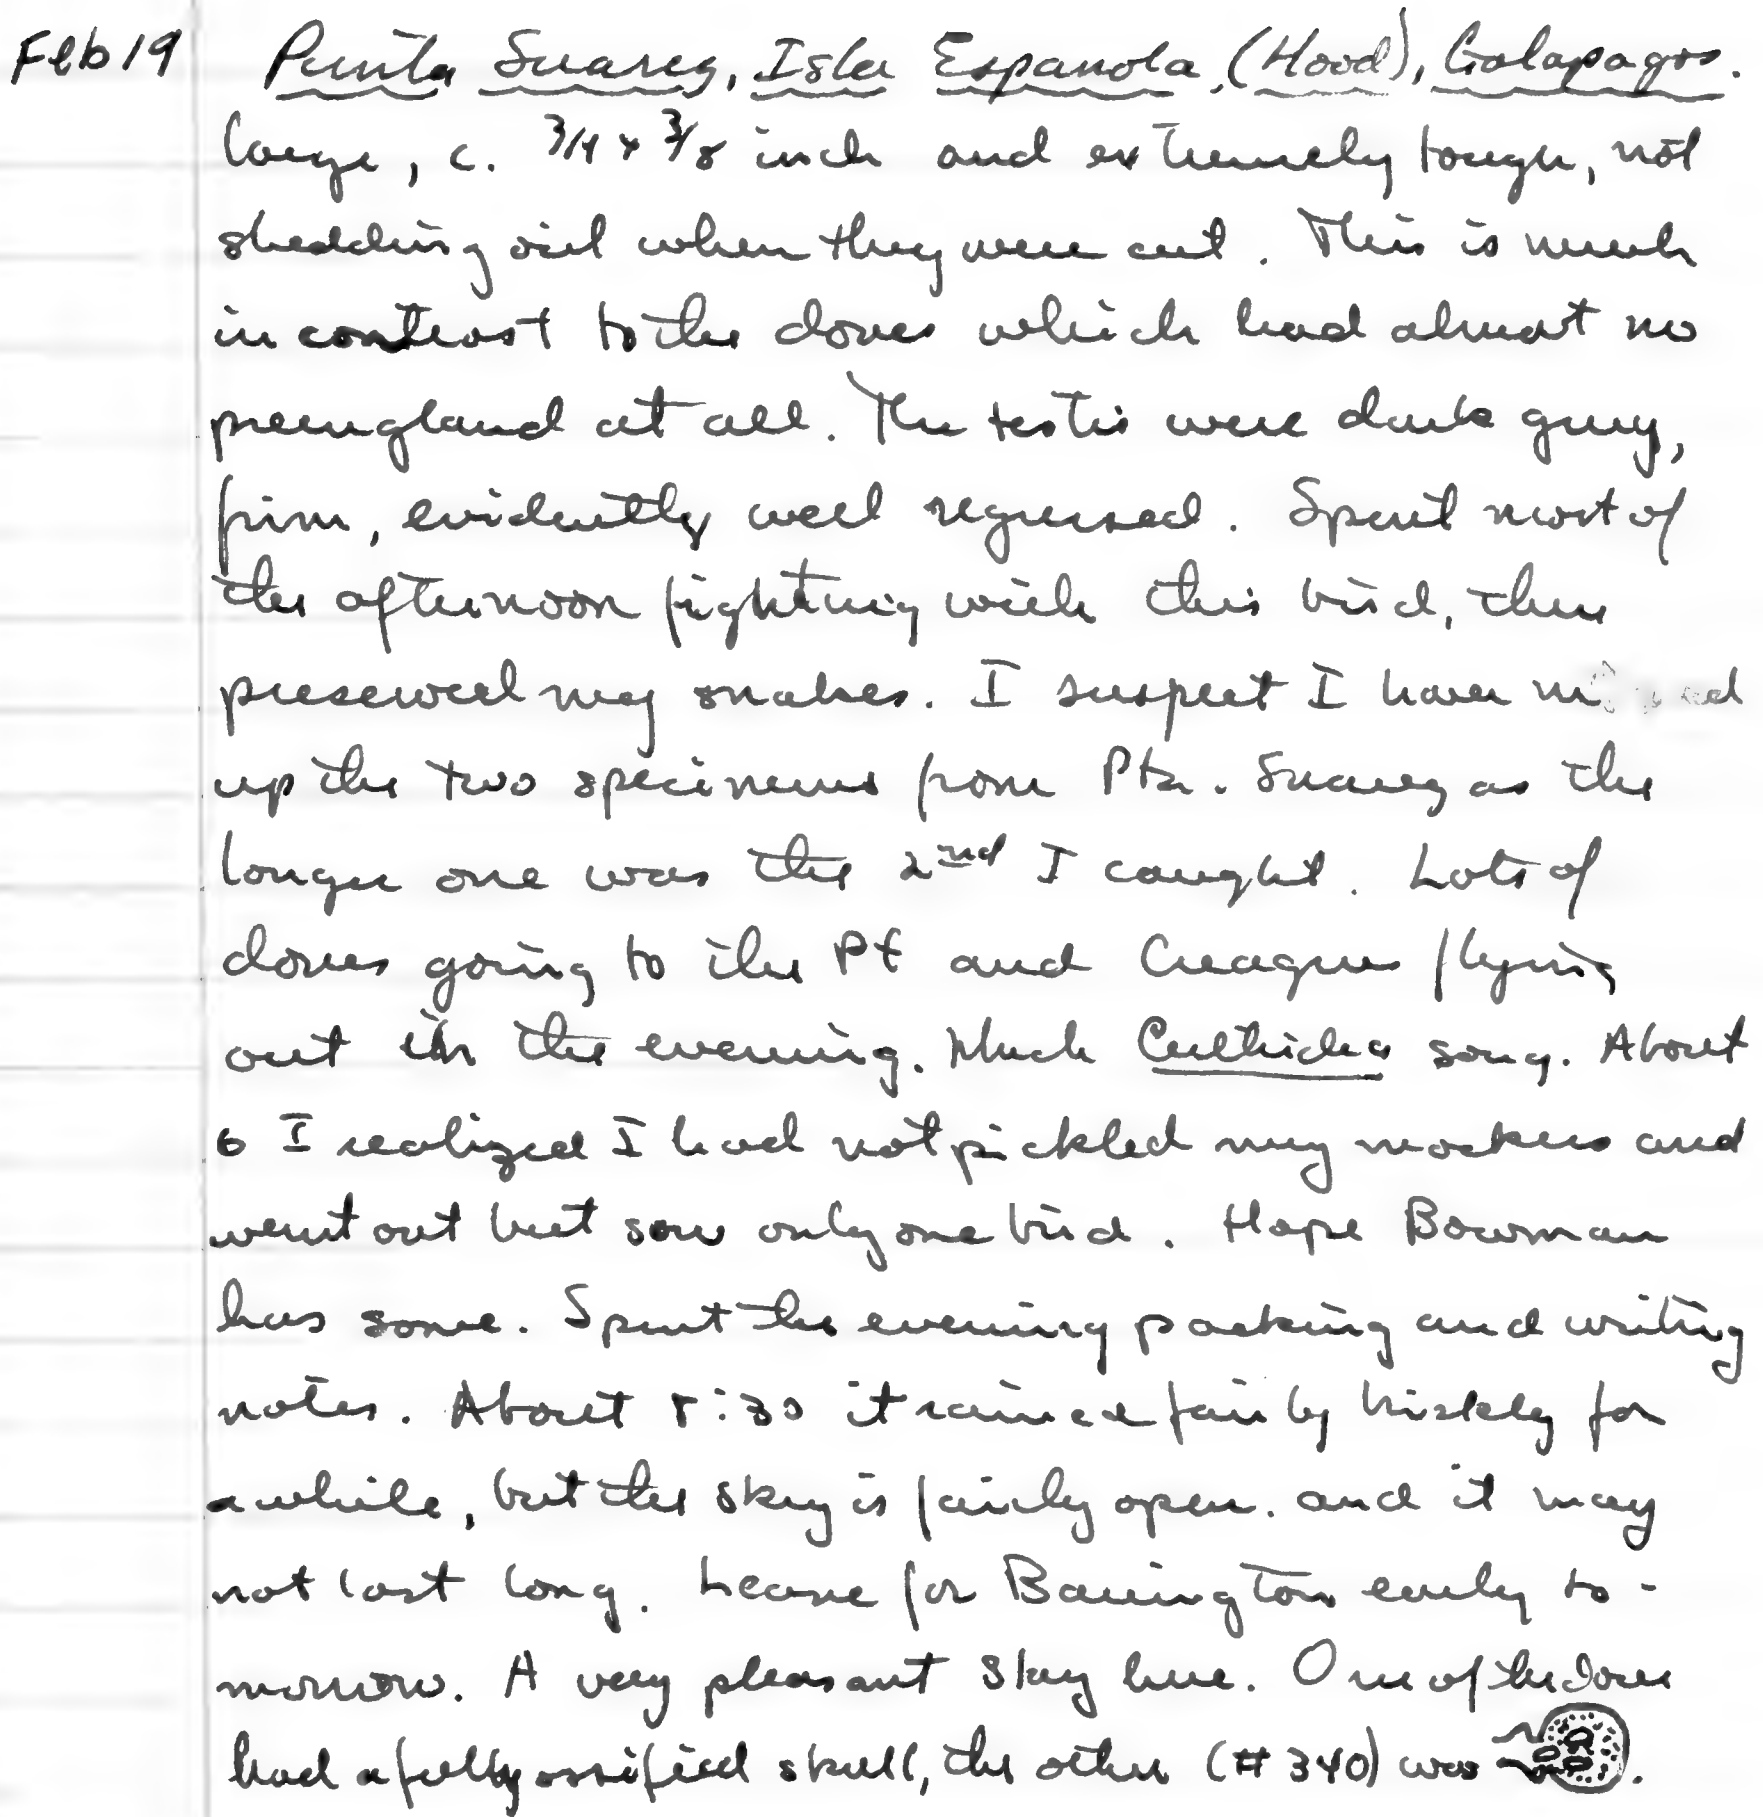 Feb 19 Punta Suarez, Isla Espanola, (Hood), Galapagos.
large, c. 3/4 x 3/8 inch and extremely tough, not
shedding oil when they were cut. This is much
in contrast to the doves which had almost no
preengland at all. The testis were dark grey,
firm, evidently well regressed. Spent most of
the afternoon fightnig with this bird, then
preserved my snakes. I suspect I have
up the two specimens from Pta. Suarez as the
longer one was the 2nd I caught. Lots of
doves going to the Pt and Creagrus flying
out in the evening. Much Certhidea song. About
6 I realized I had not pickled my mockers and
went out but saw only one bird. Hope Bowman
has some. Spent the evening packing and writing
notes. About 8:30 it rained fairly briskly for
awhile, but the sky is fairly open. and it may
not last long. Leave for Barrington early to-
morrow. A very pleasant stay here. One of the doves
had a fully ossified skull, the other (#340) was .